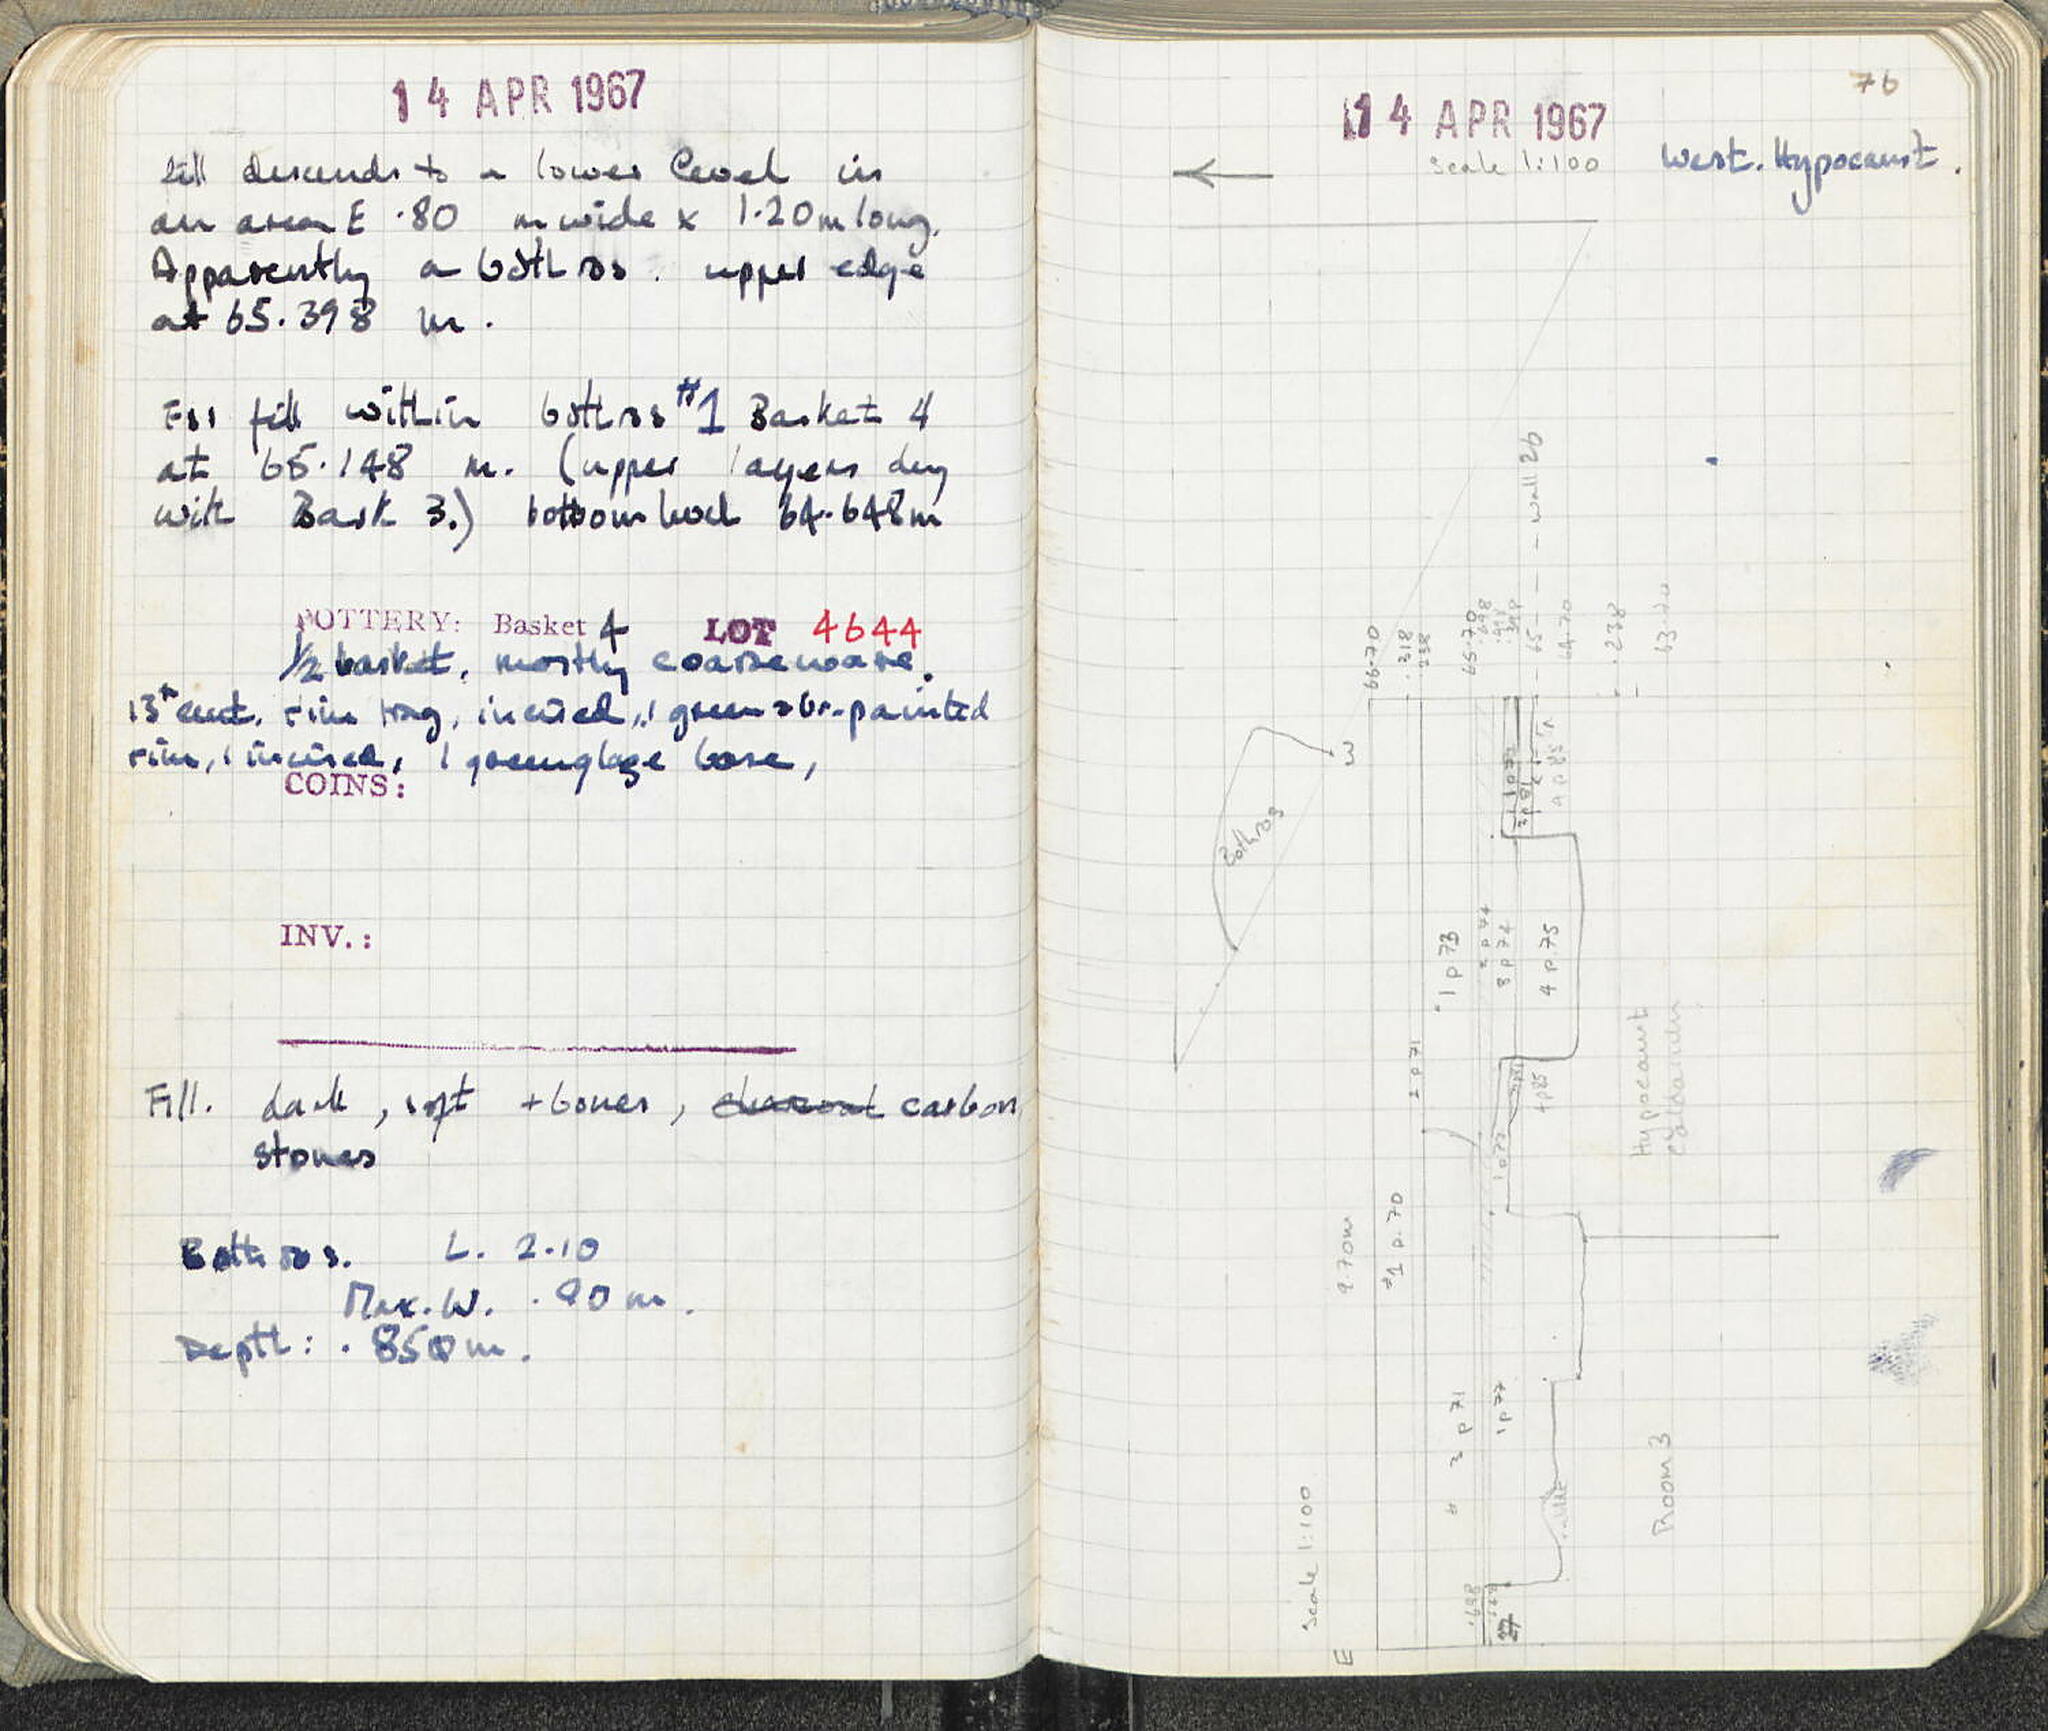 14 APR 1967
fill descends to a lower level in
an area E .80 m wide x 1.20m long.
Apparently a bothros. upper edge
at 65.398 m.
fill within bothros #1 Basket 4
at 65.148 m. (upper layers dug
with Bask 3.) bottom level 64.648m
POTTERY: Basket 4 LOT 4644
1/2 basket, mostly coarseware.
13th cent. rim frag, incised, 1 green & br. painted
rim, 1 incised, 1 greenglaze base,
COINS:
INV.:
Fill. dark, soft + bones, charcoal carbon,
stones
Bothros. L. 2.10
Max. W. .90 m.
Depth: .850 m.
76
14 APR 1967
Scale 1:100 West. Hypocaust.
wall 26
66.70
.318
.238
65.70
.698
.398
65
64.70
.238
63.70
W
Bothros
1 p 73
2 p 74
3 p 74
4 p. 75
2 p 71
4 p 85
Hypocaust
9.70m
#1 p. 70
3 p 71
1 p 77
Room 3
Scale 1:100
.698
E